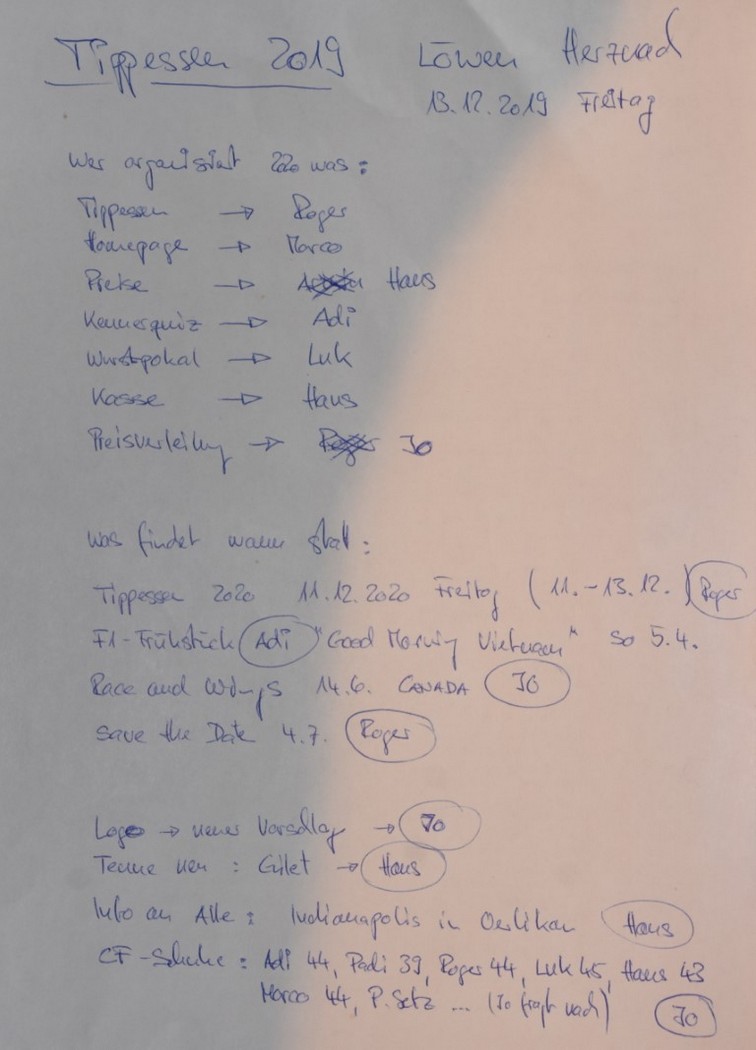 Tippessen 2019 Löwen Herznach
13.12.2019 Freitag
Wer organisiert 2020 was:
Tippessen → Roger
Homepage → Marco
Preise → Hans
Kennerquiz → Adi
Wurstpokal → Luk
Kasse → Hans
Preisverleihung → Jo
Was findet wann statt:
Tippessen 2020 11.12.2020 Freitag (11.-13.12.) Roger
F1-Frühstück Adi "Good Morning Vietnam" So 5.4.
Race and Wings 14.6. CANADA JO
Save the Date 4.7. Roger
Logo → neuer Vorschlag → Jo
Tenue neu : Gilet → Hans
Info an Alle : Indianapolis in Oerlikon Hans
CF-Schuhe : Adi 44, Padi 39, Roger 44, Luk 45, Hans 43
Marco 44, P. Setz ... (Jo fragt nach) Jo